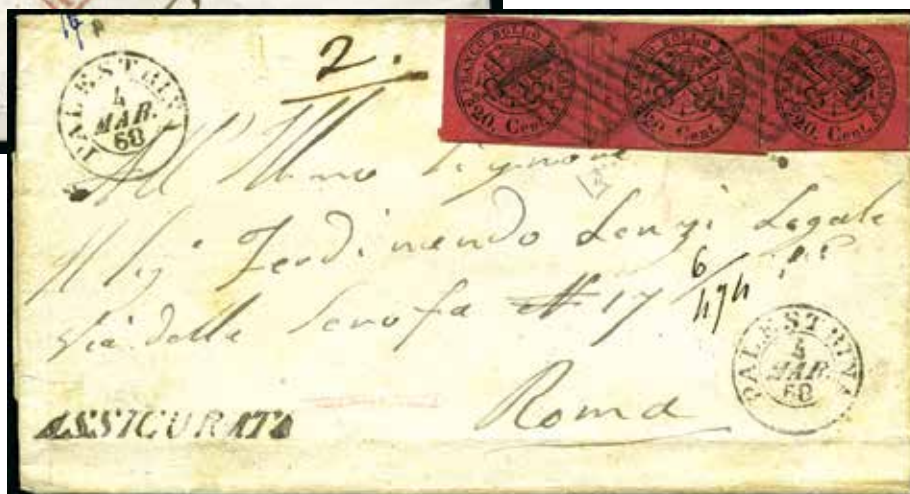 2.
PALESTRINA
4
MAR.
68
FRANCO BOLLO POSTALE
20. Cent.
FRANCO BOLLO POSTALE
20. Cent.
FRANCO BOLLO POSTALE
20. Cent.
All' Illmo Signore
Il Sigr Ferdinando Lenzi Legale
Via della Scrofa # 17
6
474
Roma
ASSICURATA
PALESTRINA
4
MAR.
68